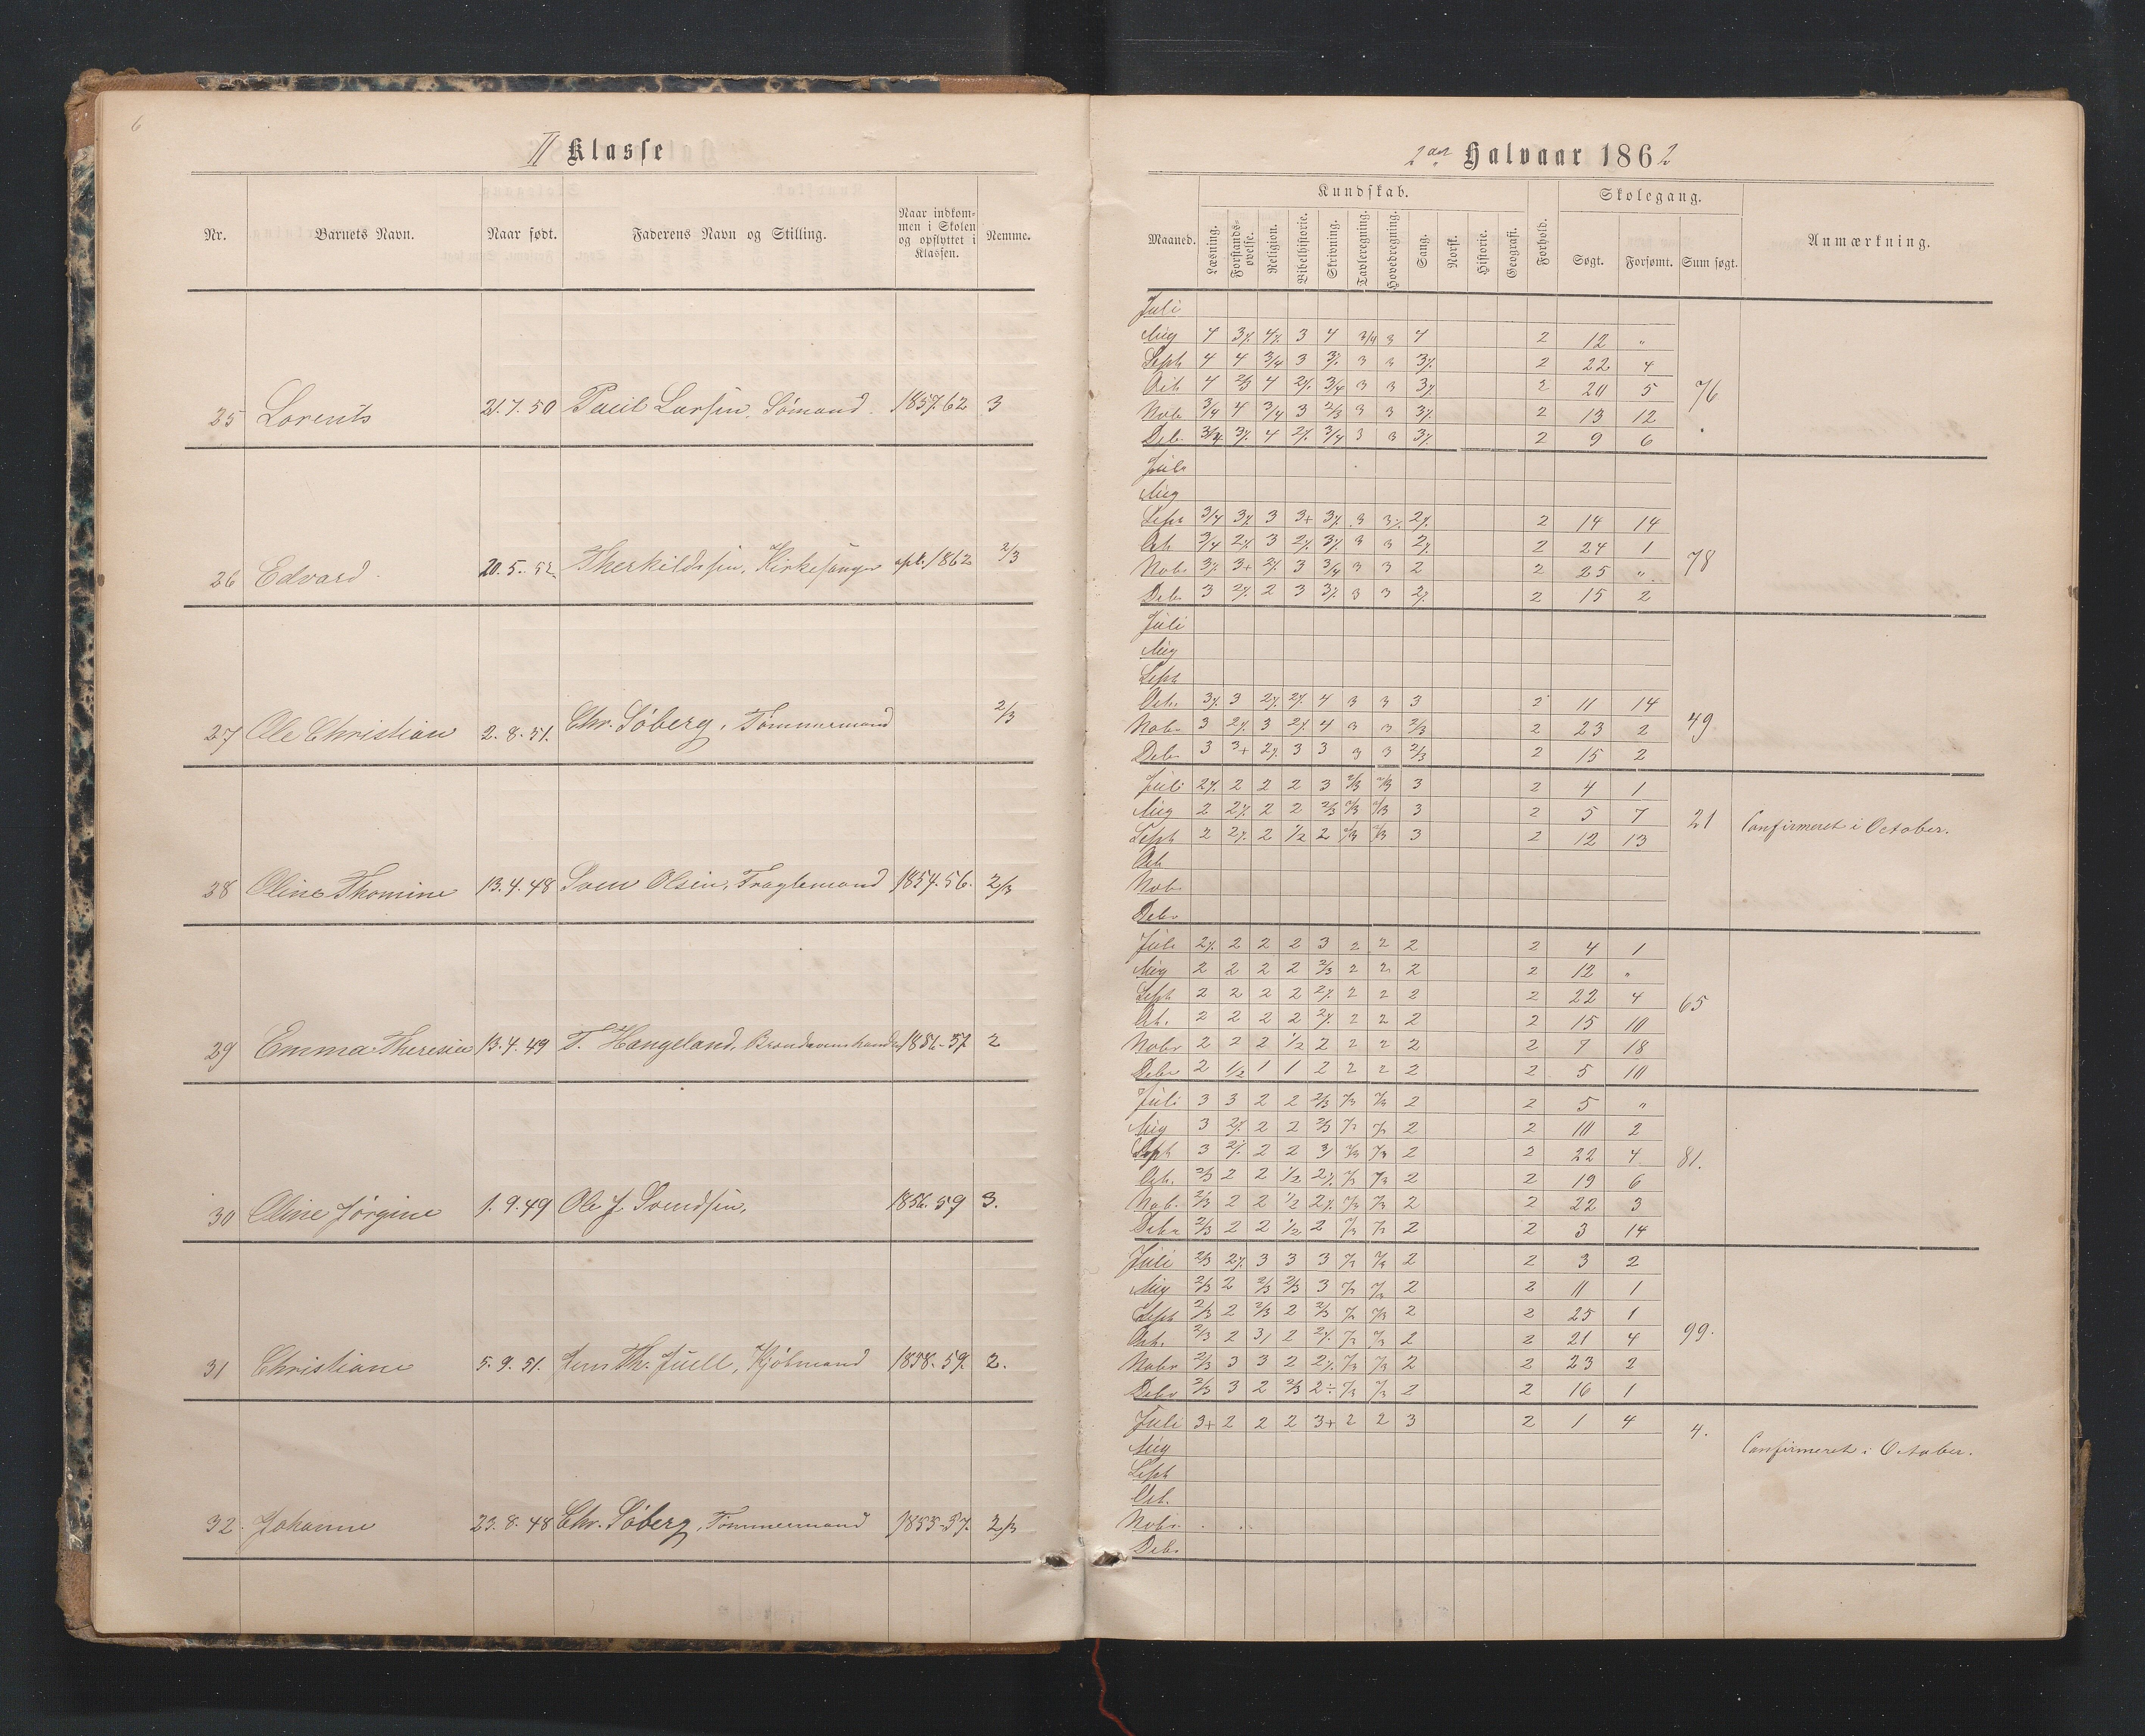 6
II Klasse
Nr. Barnets Navn. Naar født. Faderens Navn og Stilling. Naar indkommen i Skolen og opflyttet i Klassen. Nemme.
25 Lorents 21.7.50 Paul Larsen, Sømand. 1857.62 3
26 Edvard 20.5.52. Therkildsen, Kirkesanger sept. 1862 2/3
27 Ole Christian 2.8.51. Chr. Søberg, Tømmermand 2/3
28 Oline Thomine 13.4.48 Sven Olsen, 1854.56. 2/3
29 Emma Theresia 13.4.49 T. Hangeland, 1856-57 2
30 Oline Jørgine 1.9.49 Ole J. Svendsen, 1856.59 3.
31 Christiane 5.9.51. Th. Juell, 1858.59. 2.
32. Johanne 23.8.48 Chr. Søberg, Tømmermand 1855-57. 2/3
2det Halvaar 1862
Kundskab. Skolegang.
Maaned. Læsning. Forstandsøvelse. Religion. Bibelhistorie. Skrivning. Tavleregning. Hovedregning. Sang. Norsk. Historie. Geografi. Forhold. Søgt. Forsømt. Sum søgt. Anmærkning.
Juli
Aug 4 3 4 3 4 3/4 3 4 2 12 "
Sept 4 4 3/4 3 3 3 3 3 2 22 4
Oct. 4 2/3 4 2 3/4 3 3 3 2 20 5 76
Nob 3/4 4 3/4 3 2/3 3 3 3 2 13 12
Deb. 3/4 3 4 2 3/4 3 3 3 2 9 6
Juli
Aug
Sept 3/4 3 3 3+ 3 3 3 2 2 14 14
Oct. 3/4 2 3 2 3 3 3 2 2 24 1 78
Nob. 3 3+ 2 3 3/4 3 3 2 2 25 "
Deb. 3 2 2 3 3 3 3 2 2 15 2
Juli
Aug
Sept
Oct. 3 3 2 2 4 3 3 3 2 11 14
Nob. 3 2 3 2 4 3 3 2/3 2 23 2 49
Deb. 3 3+ 2 3 3 3 3 2/3 2 15 2
Juli 2 2 2 2 3 2/3 2/3 3 2 4 1
Aug 2 2 2 2 2/3 2/3 2/3 3 2 5 7 21 Confirmeret i October.
Sept 2 2 2 1/2 2 2/3 2/3 3 2 12 13
Oct.
Nob.
Debr
Juli 2 2 2 2 3 2 2 2 2 4 1
Aug 2 2 2 2 2/3 2 2 2 2 12 "
Sept 2 2 2 2 2 2 2 2 2 22 4 65
Oct. 2 2 2 2 2 2 2 2 2 15 10
Nobr 2 2 2 1/2 2 2 2 2 2 7 18
Debr 2 1/2 1 1 2 2 2 2 2 5 10
Juli 3 3 2 2 2/3 2/3 2/3 2 2 5 "
Aug 3 2 2 2 2/3 2 2 10 2
Sept 3 2 2 2 3 2 2 22 4 81.
Oct. 2/3 2 2 1/2 2 2 2 19 6
Nob. 2/3 2 2 1/2 2 2 2 22 3
Debr 2/3 2 2 1/2 2 2 2 3 14
Juli 2/3 2 3 3 3 2 2 3 2
Aug 2/3 2 2/3 2/3 3 2 2 11 1
Sept 2/3 2 2/3 2 2/3 2 2 25 1
Oct. 2/3 2 3 2 2 2 2 21 4 99.
Nobr 2/3 3 3 2 2 2 2 23 2
Debr 2/3 3 2 2/3 2 2 2 16 1
Juli 3+ 2 2 2 3+ 2 2 3 2 1 4 4.
Aug Confirmeret i October.
Sept
Oct.
Nobr.
Debr